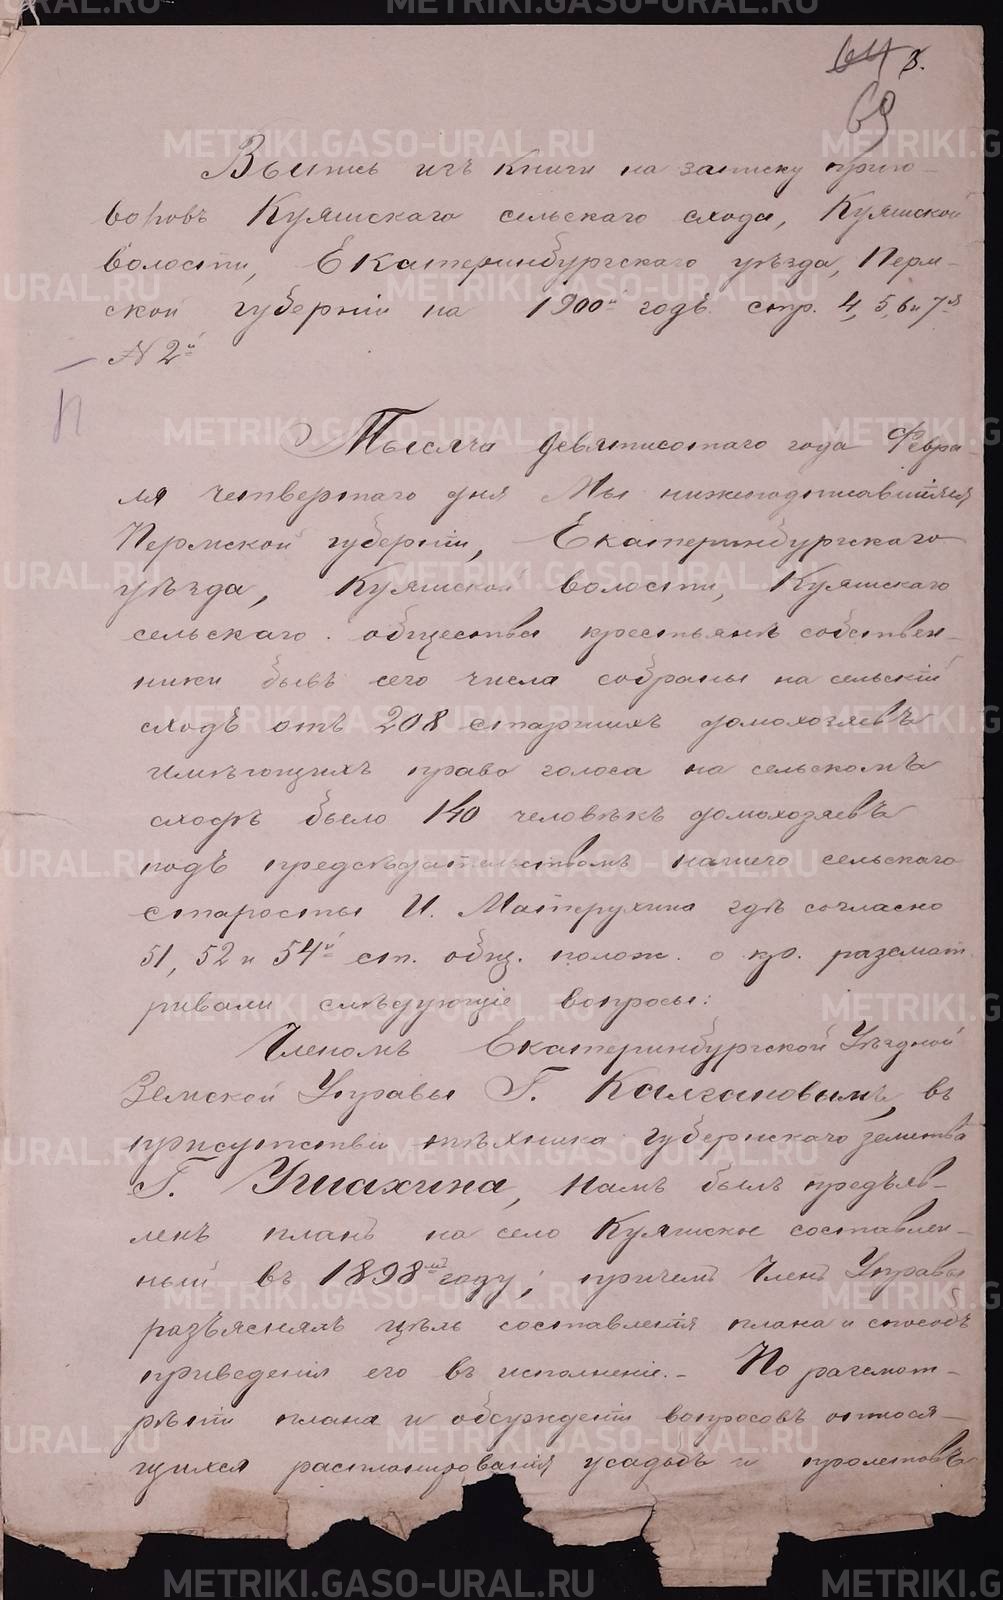 64 3.
69
Выпись изъ книги на записку приго-
воровъ Куяшскаго сельскаго схода, Куяшской
волости, Екатеринбургскаго уѣзда, Перм-
ской губерніи на 1900й годъ стр. 4, 5, 6 и 7я
N 2й
Тысяча девятисотаго года Февра-
ля четвертаго дня Мы нижеподписавшіяся
Пермской губерніи, Екатеринбургскаго
уѣзда, Куяшской волости, Куяшскаго
сельскаго общества крестьянъ собствен-
ники бывъ сего числа собраны на сельскій
сходъ отъ 208 старшихъ домохозяевъ
имѣющихъ право голоса на сельскомъ
сходѣ было 140 человѣкъ домохозяевъ
подъ предсѣдательствомъ нашего сельскаго
старосты И. Матерухина гдѣ согласно
51, 52 и 54й ст. общ. полож. о кр. разсмат
ривали слѣдующіе вопросы:
Членомъ Екатеринбургской Уѣздной
Земской Управы Г. Калгановымъ, въ
присутствіи тѣхника губернскаго земства
Г. Ушахина, намъ былъ предъяв-
ленъ планъ на село Куяшское составлен-
ный въ 1898мъ году; причемъ Членъ Управы
разъяснялъ цѣль составленія плана и способъ
приведенія его въ исполненіе.- По разсмот-
рѣніи плана и обсужденіи вопросовъ относя-
щихся распланированія усадьбъ и пролетовъ
METRIKI.GASO-URAL.RU